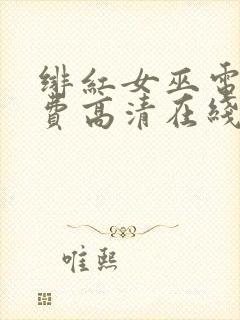 绯红女巫電
費高清在綫
唯熙